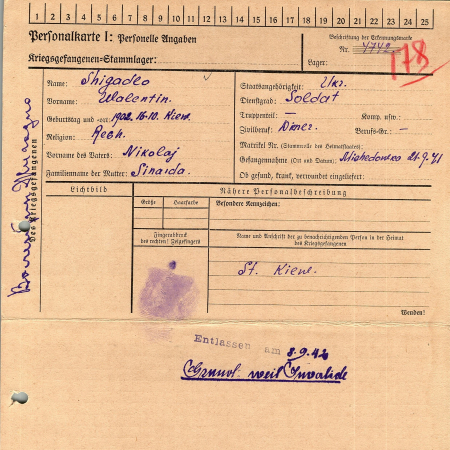 1 2 3 4 5 6 7 8 9 10 11 12 13 14 15 16 17 18 19 20 21 22 23 24 25
Personalkarte I: Personelle Angaben
Kriegsgefangenen-Stammlager:
Beschriftung der Erkennungsmarke
Nr. 4742
178
Lager:
Name: Shigadlo
Vorname: Walentin.
Geburtstag und -ort: 1902.16.10. Kiew.
Religion: Rech.
Vorname des Vaters: Nikolaj
Familienname der Mutter: Sinaida.
Staatsangehörigkeit: Ukr.
Dienstgrad: Soldat
Truppenteil: — Komp. usw.:
Zivilberuf: Berufs-Gr.: —
Matrikel Nr. (Stammrolle des Heimatstaates):
Gefangennahme (Ort und Datum): 21.9.41
Ob gesund, krank, verwundet eingeliefert:
des Kriegsgefangenen
Lichtbild
Nähere Personalbeschreibung
Größe
Haarfarbe
Besondere Kennzeichen:
Fingerabdruck
des rechten! Zeigefingers
Name und Anschrift der zu benachrichtigenden Person in der Heimat
des Kriegsgefangenen
St. Kiew.
Wenden!
Entlassen am 8.9.42
Grund: weil Invalide